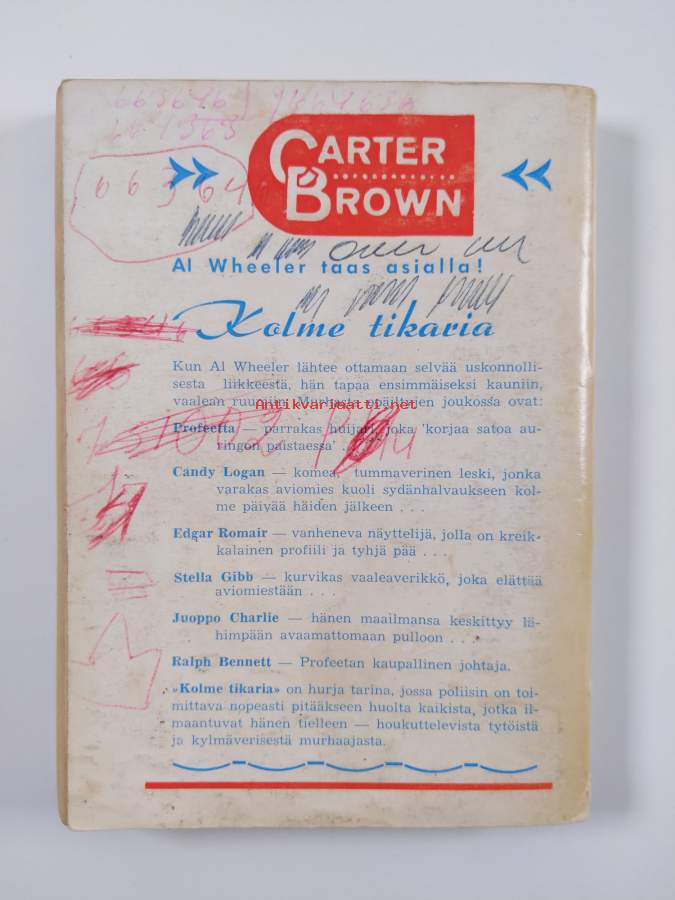 663646
661363
66364
CARTER
BROWN
Al Wheeler taas asialla!
Kolme tikaria
Kun Al Wheeler lähtee ottamaan selvää uskonnolli-
sesta liikkeestä, hän tapaa ensimmäiseksi kauniin,
vaalean ruumiin. Murhasta epäiltyjen joukossa ovat:
Antikvariaatti.net
Profeetta — parrakas huijari, joka 'korjaa satoa au-
ringon paistaessa' . . .
Candy Logan — komea, tummaverinen leski, jonka
varakas aviomies kuoli sydänhalvaukseen kol-
me päivää häiden jälkeen . . .
Edgar Romair — vanheneva näyttelijä, jolla on kreik-
kalainen profiili ja tyhjä pää . . .
Stella Gibb — kurvikas vaaleaverikkö, joka elättää
aviomiestään . . .
Juoppo Charlie — hänen maailmansa keskittyy lä-
himpään avaamattomaan pulloon . . .
Ralph Bennett — Profeetan kaupallinen johtaja.
»Kolme tikaria» on hurja tarina, jossa poliisin on toi-
mittava nopeasti pitääkseen huolta kaikista, jotka il-
maantuvat hänen tielleen — houkuttelevista tytöistä
ja kylmäverisestä murhaajasta.